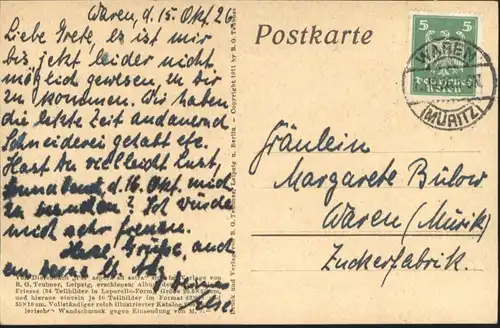 Waren, d. 15. Okt. 26
Liebe Grete, es ist mir
bis jetzt leider nicht
möglich gewesen, zu dir
zu kommen. Wir haben
die letzte Zeit andauernd
Schneiderei gehabt etc.
Hast du vielleicht Lust,
Sonnabend, d. 16. Okt. mich
zu besuchen? Ich würde
mich sehr freuen.
Herzl. Grüße, auch
an deine
deine
Ilse
B. G. Teubner, Leipzig, erschienen
Friesen (34 Teilbilder in Leporello-Form
und hieraus einzeln je 10 Teilbilder im Format 42×
Vollständiger reich illustrierter Katalog
Wandschmuck gegen Einsendung von M.
Druck und Verlag von B. G. Teubner, Leipzig u. Berlin - Copyright 1911 by B. G. Teubner
Postkarte
5 5
Deutsches
Reich
WAREN
(MÜRITZ)
Fräulein
Margarete Bülow
Waren (Müritz)
Zuckerfabrik.